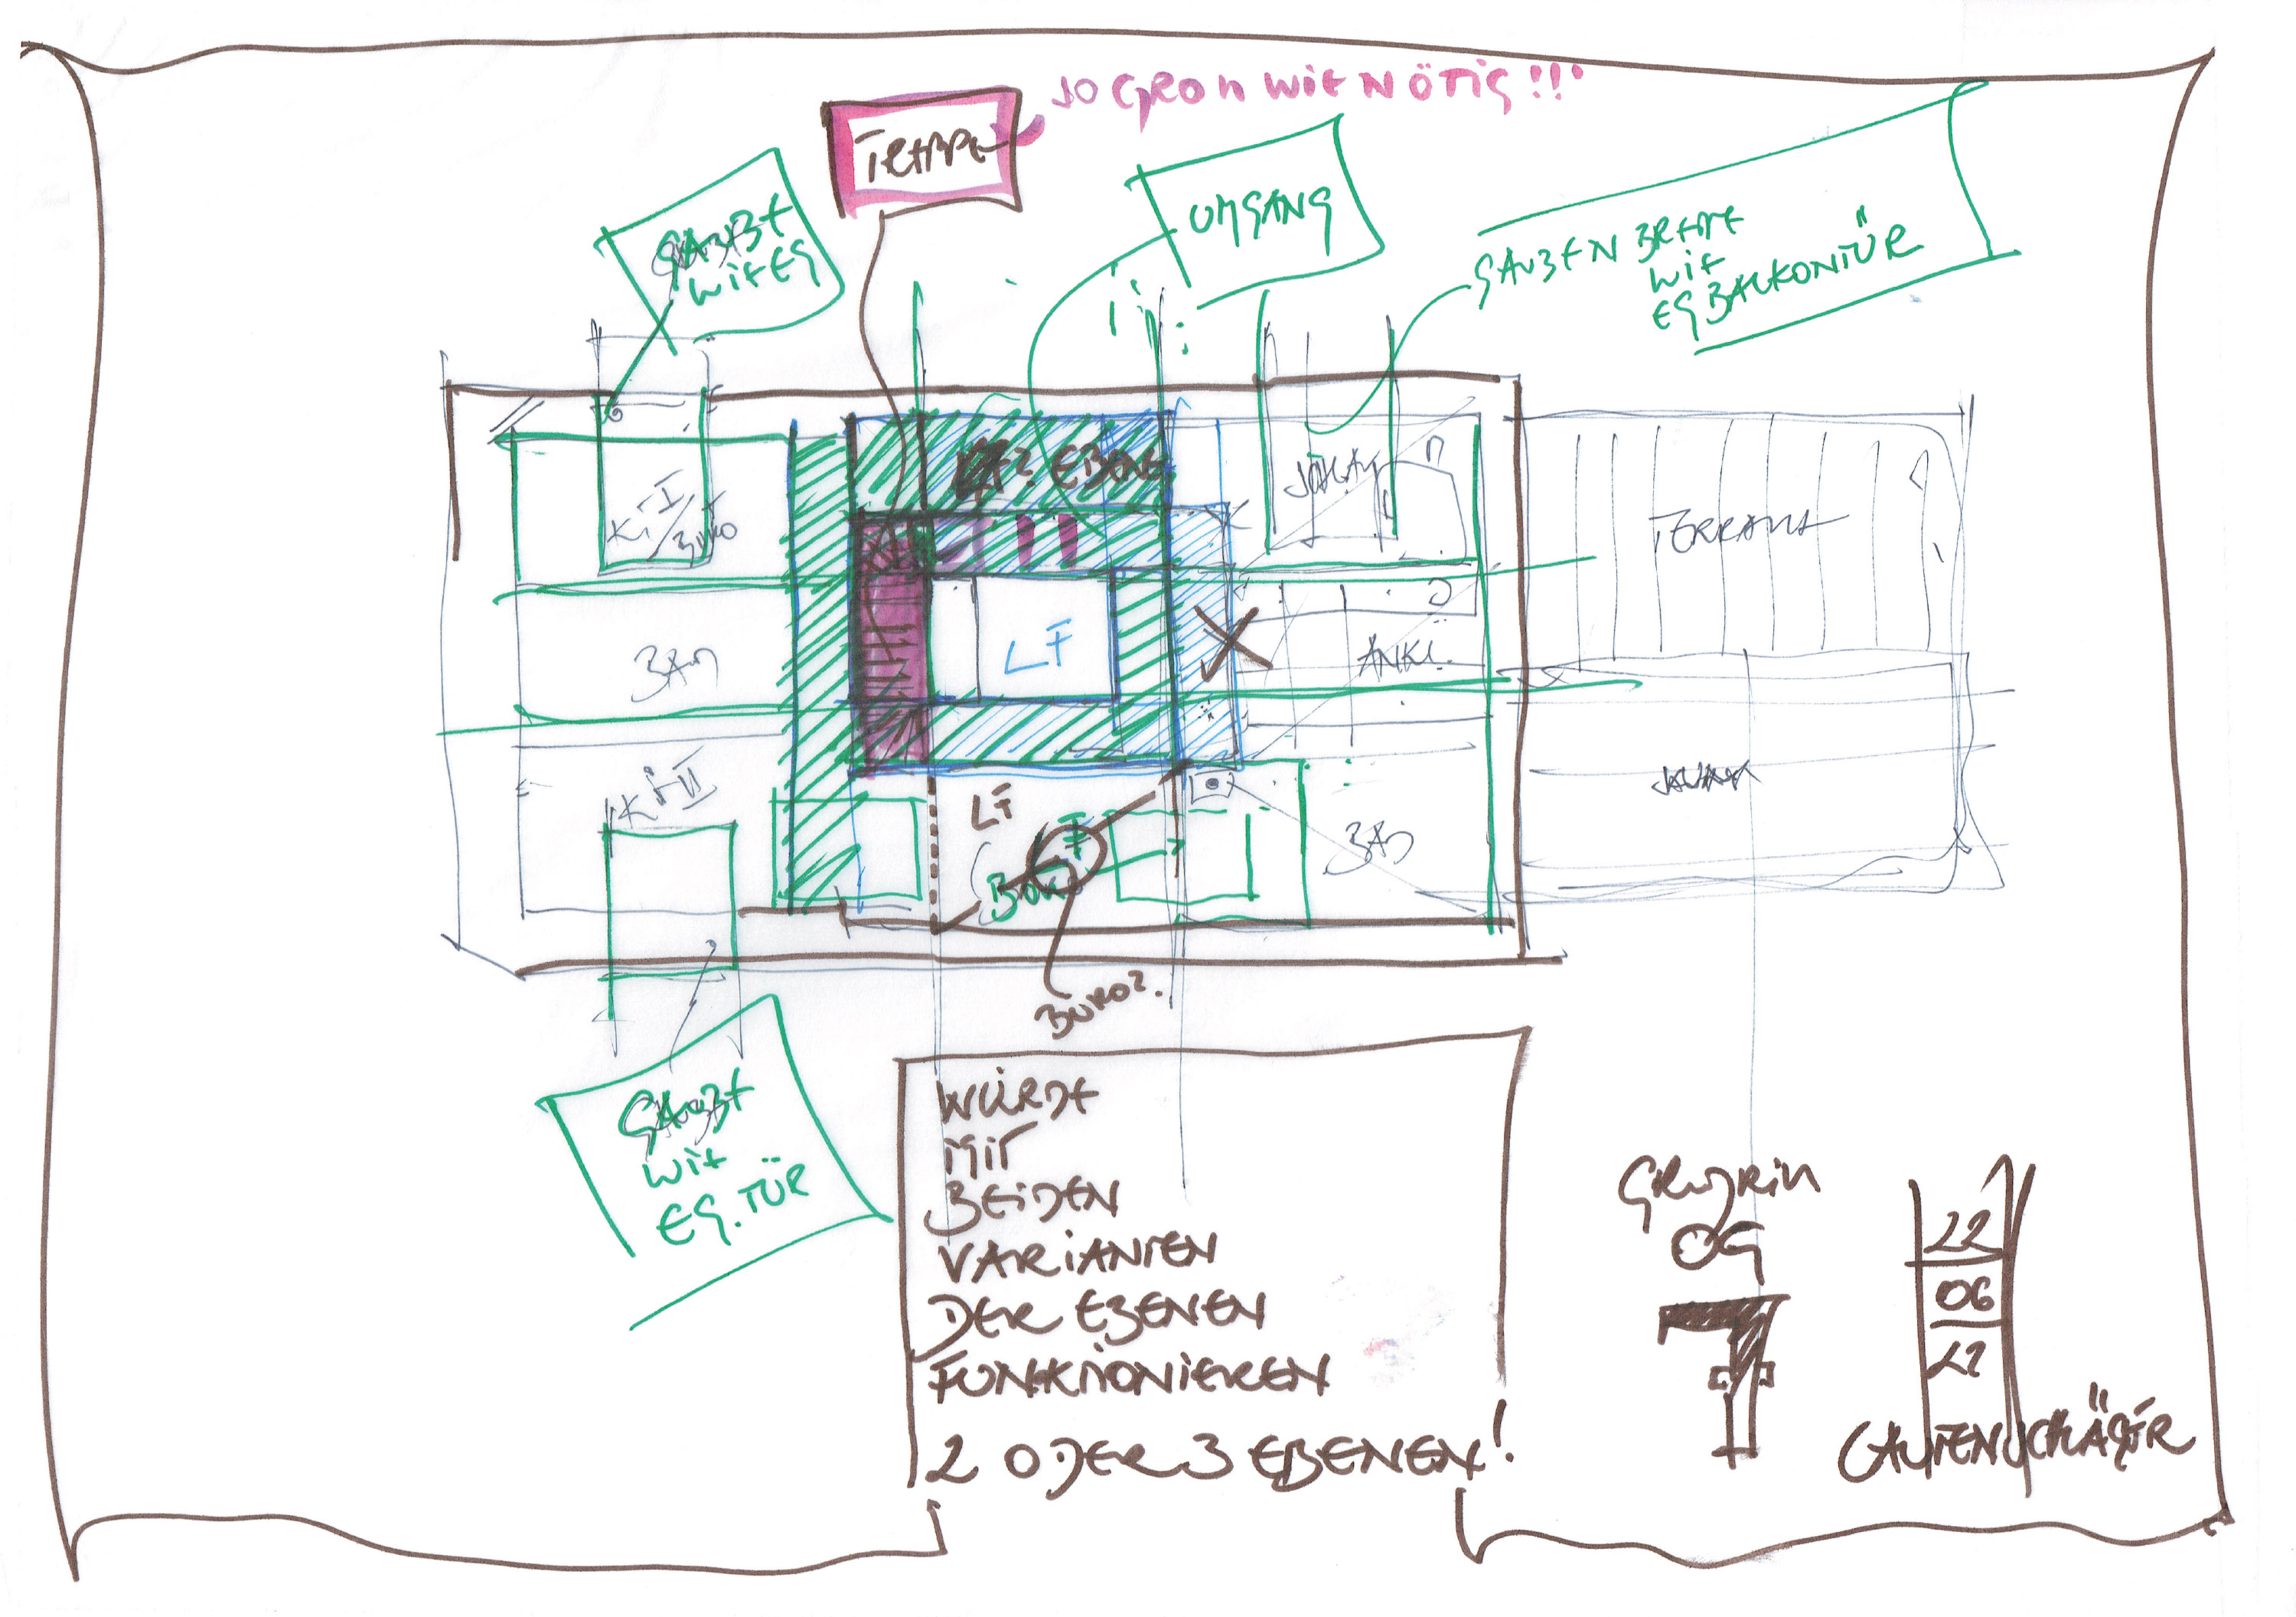 SO GROß WIE NÖTIG!!!
TREPPE
UMGANG
GAUBE
WIE EG
GAUBEN BREITE
WIE
EG BALKONTÜR
2. EBENE
KI I
/
BÜRO
TERRASSE
LF
BAD
ANKL.
KI II
LF
BÜRO
BAD
BÜRO?
GAUBE
WIE
EG. TÜR
WÜRDE
MIT
BEIDEN
VARIANTEN
DER EBENEN
FUNKTIONIEREN
2 ODER 3 EBENEN!
GRUNDRISS
OG
22
06
22
LAUTENSCHLÄGER